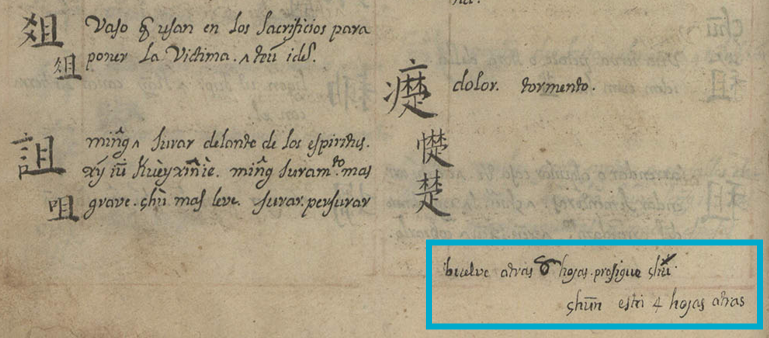 爼 Vaso q̃ usan en los sacrificios para
俎 poner la Victima. ^ teú ides.
詛 miñg ^ Jurar delante de los espiritus.
xý iũ Kuèy xîn iè. miñg Juram.to mas
咀 grave. chú mas leve. Jurar. perjurar
㾻 dolor. tormento.
憷
楚
buelve atras 8 hojas. prosigue chu
chun esta 4 hojas atras